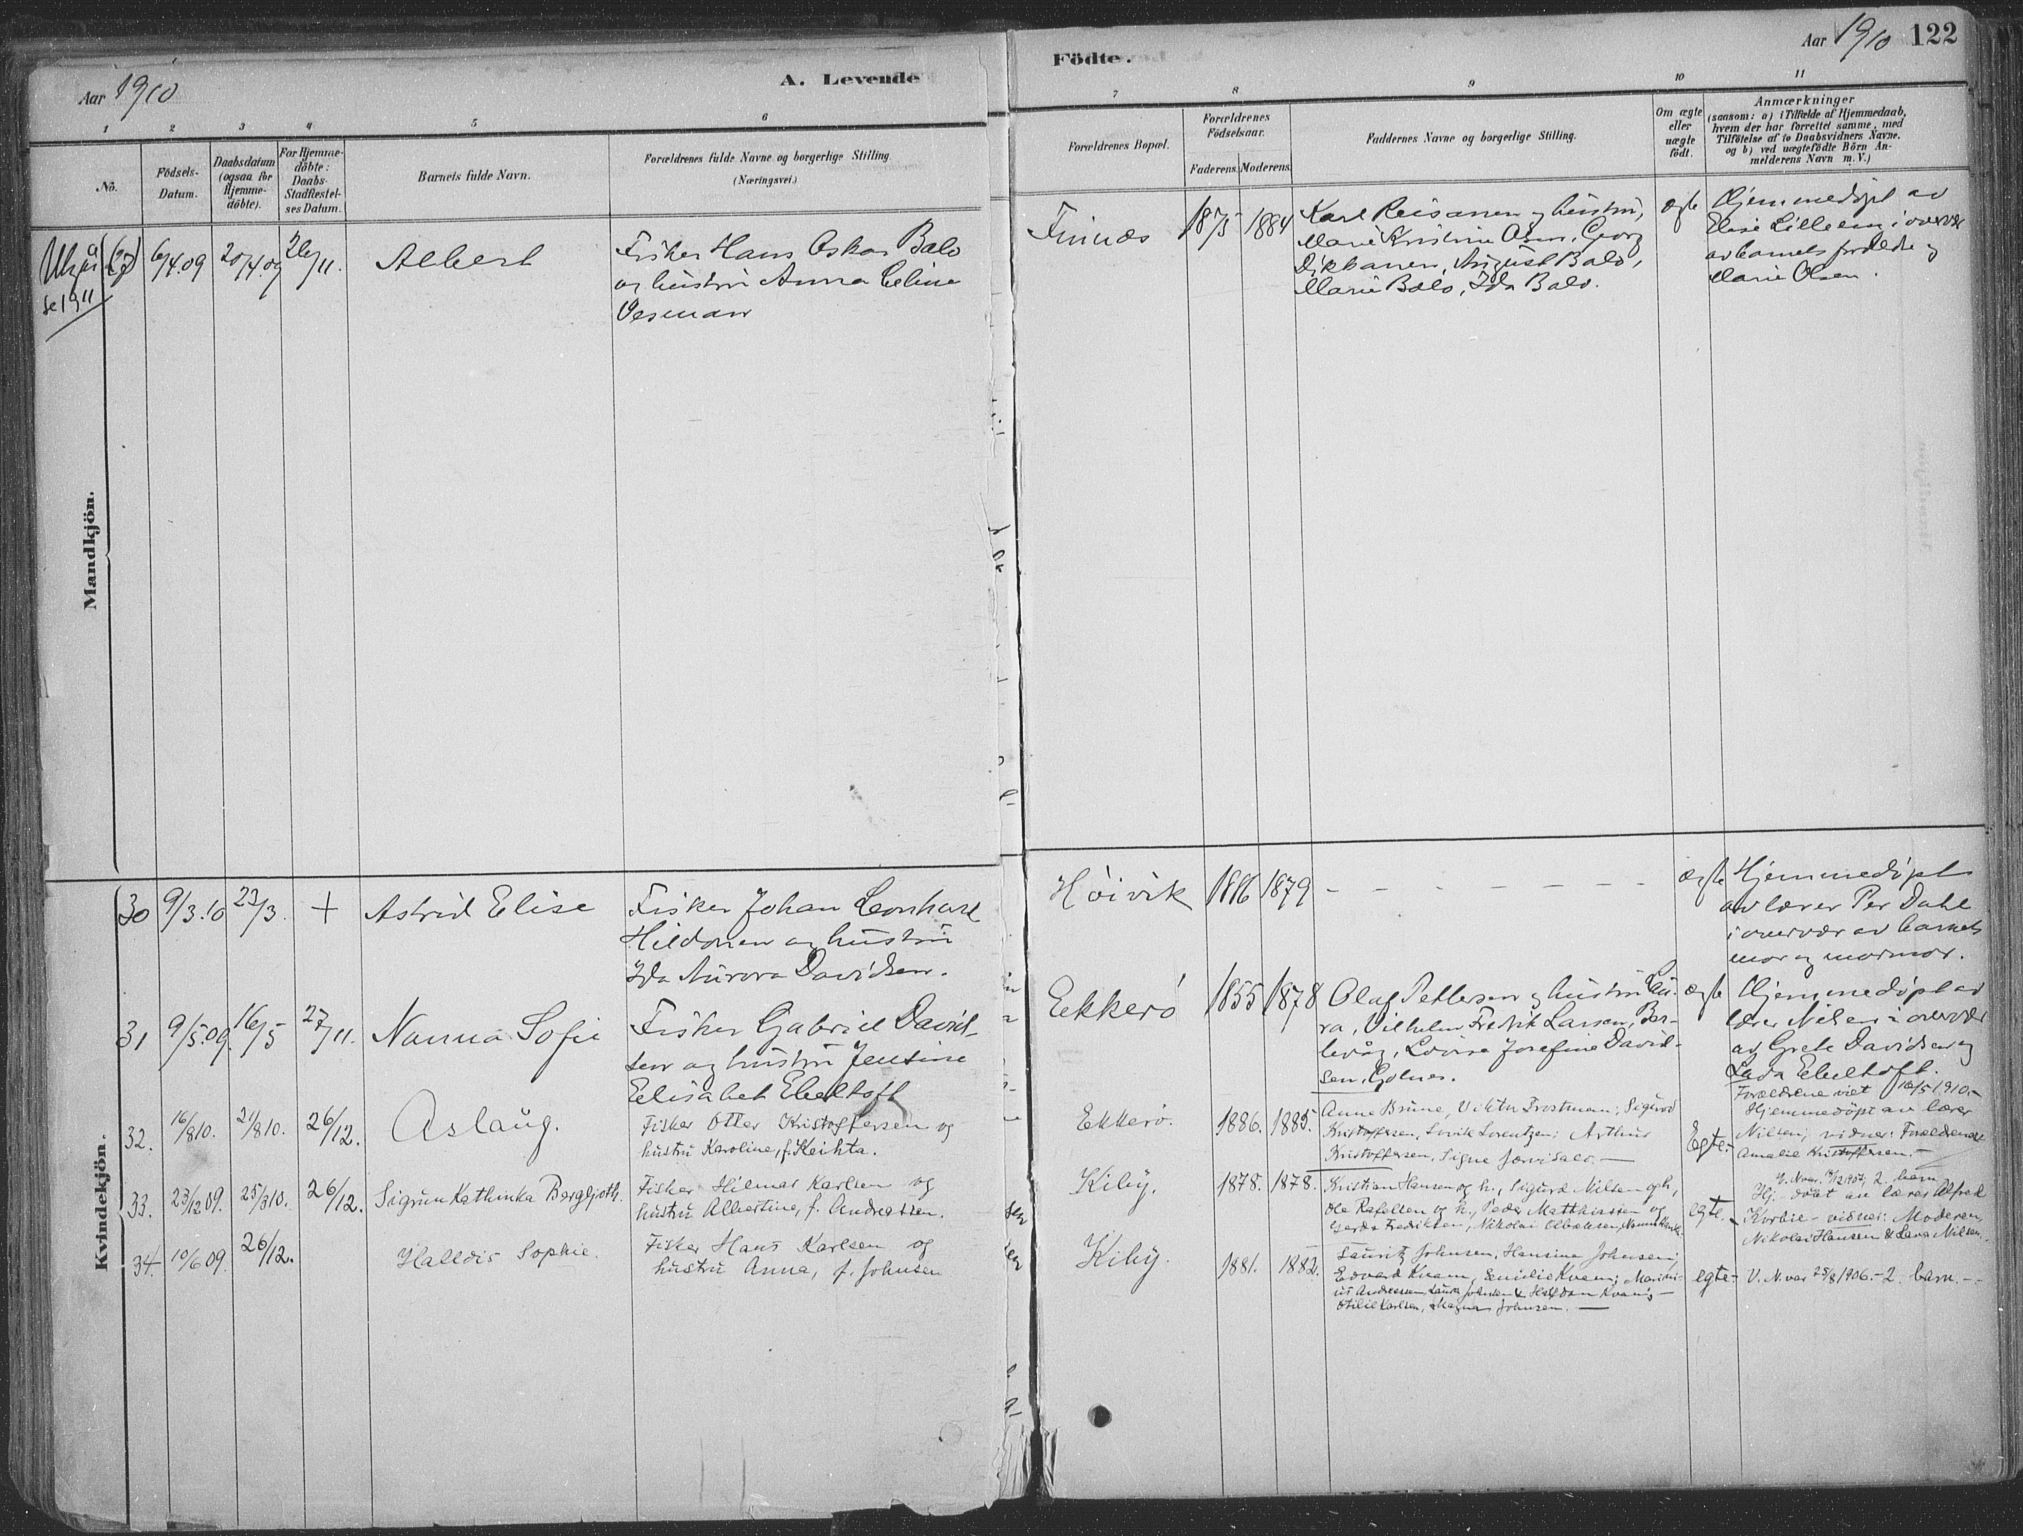 Aar 1910
A. Levende
Födte.
Aar 1910 122
1 2 3 4 5 6 7 8 9 10 11
No.
Födsels-
Datum.
Daabsdatum
(ogsaa for
Hjemme-
döbte).
For Hjemme-
döbte:
Daabs-
Stadfæstel-
ses Datum.
Barnets fulde Navn.
Forældrenes fulde Navne og borgerlige Stilling
(Næringsvei.)
Forældrenes Bopæl.
Forældrenes
Födselsaar.
Faderens. Moderens.
Faddernes Navne og borgerlige Stilling.
Om ægte
eller
uægte
födt.
Anmærkninger
(saasom: a) i Tilfælde af Hjemmedaab,
hvem der har forrettet samme, med
Tilföielse af to Daabsvidners Navne.
og b) ved uægtefödte Börn An-
melderens Navn m. V.)
Mandkjön.
se 1911
6/4.09 20/4 09 26/11. Albert
Fisker Hans Oskar Balo
og hustru Anna Celine
Vesman
1875 1884
Karl Reisanen og hustru,
Marie Kristine Olsen, Georg
Dikkanen, August Balo,
Marie Balo, Ida Balo.
ægte
Hjemmedøpt av
Elise Lilleeng i overvær
av barnets forældre og
Marie Olsen.
Kvindekjön.
30 9/3.10 23/3. + Astrid Elise
Fisker Johan Leonhard
Hildonen og hustru
Ida Aurora Davidsen.
Høivik 1886 1879 - - - - - - - ægte
Hjemmedøpt
av lærer Per Dahl
i overvær av barnets
mor og mormor.
31 9/5.09. 16/5 27/11. Nanna Sofie
Fisker Gabriel David-
sen og hustru Jensine
Elisabet Ebeltoft
Ekkerø 1855 1878
Olaf Pettersen og hustru Lau-
ra, Vilhelm Fredrik Larsen, Ber-
levåg, Lovise Josefine David-
sen, Golnes.
ægte
Hjemmedøpt av
lærer Nilsen i overvær
av Grete Davidsen og
Lada Ebeltoft.
32. 16/8 10. 21/8 10. 26/12. Aslaug.
Fisker Otter Kristoffersen og
hustru Karoline, f. Keihta.
Ekkerø. 1886. 1885.
Anne Brune, Viktor Frostman; Sigurd
Kristoffersen, Lovik Lorentzen; Arthur
Kristoffersen, Signe Jærvisalo.—
Egte.-
Forældrene viet 16/5 1910.-
Hjemmedøpt av lærer
Nilsen; vidner: Forældrene &
Amalie Kristoffersen.-
33. 23/12 09. 25/3 10. 26/12. Sigrun Kathinka Bergljoth.
Fisker Hilmar Karlsen og
hustru Albertine, f. Andreassen.
Kiby. 1878. 1878.
Kristian Hansen og h., Sigurd Nilsen og h,
Ole Rafelsen og h., Peder Matthiassen og
Gerda Fredriksen, Nikolai
egte.-
2. barn
Hj.-døpt av lærer Alfred
Korbie - vidner: Moderen,
Nikolai Hansen & Lava Nilsen.
34. 10/6 09. 26/12. Halldis Sophie.
Fisker Hans Karlsen og
hustru Anna, f. Johnsen
Kiby. 1881. 1882.
Lauritz Johnsen, Hansine Johnsen;
Edvard Kvam, Emilie Kvam; Marini-
us Andreassen, Laura Johnsen & Halfdan Kvam;-
Otilie Karlsen, Magnus Johnsen. —
egte-
V. N. var 25/8 1906.- 2. barn.--